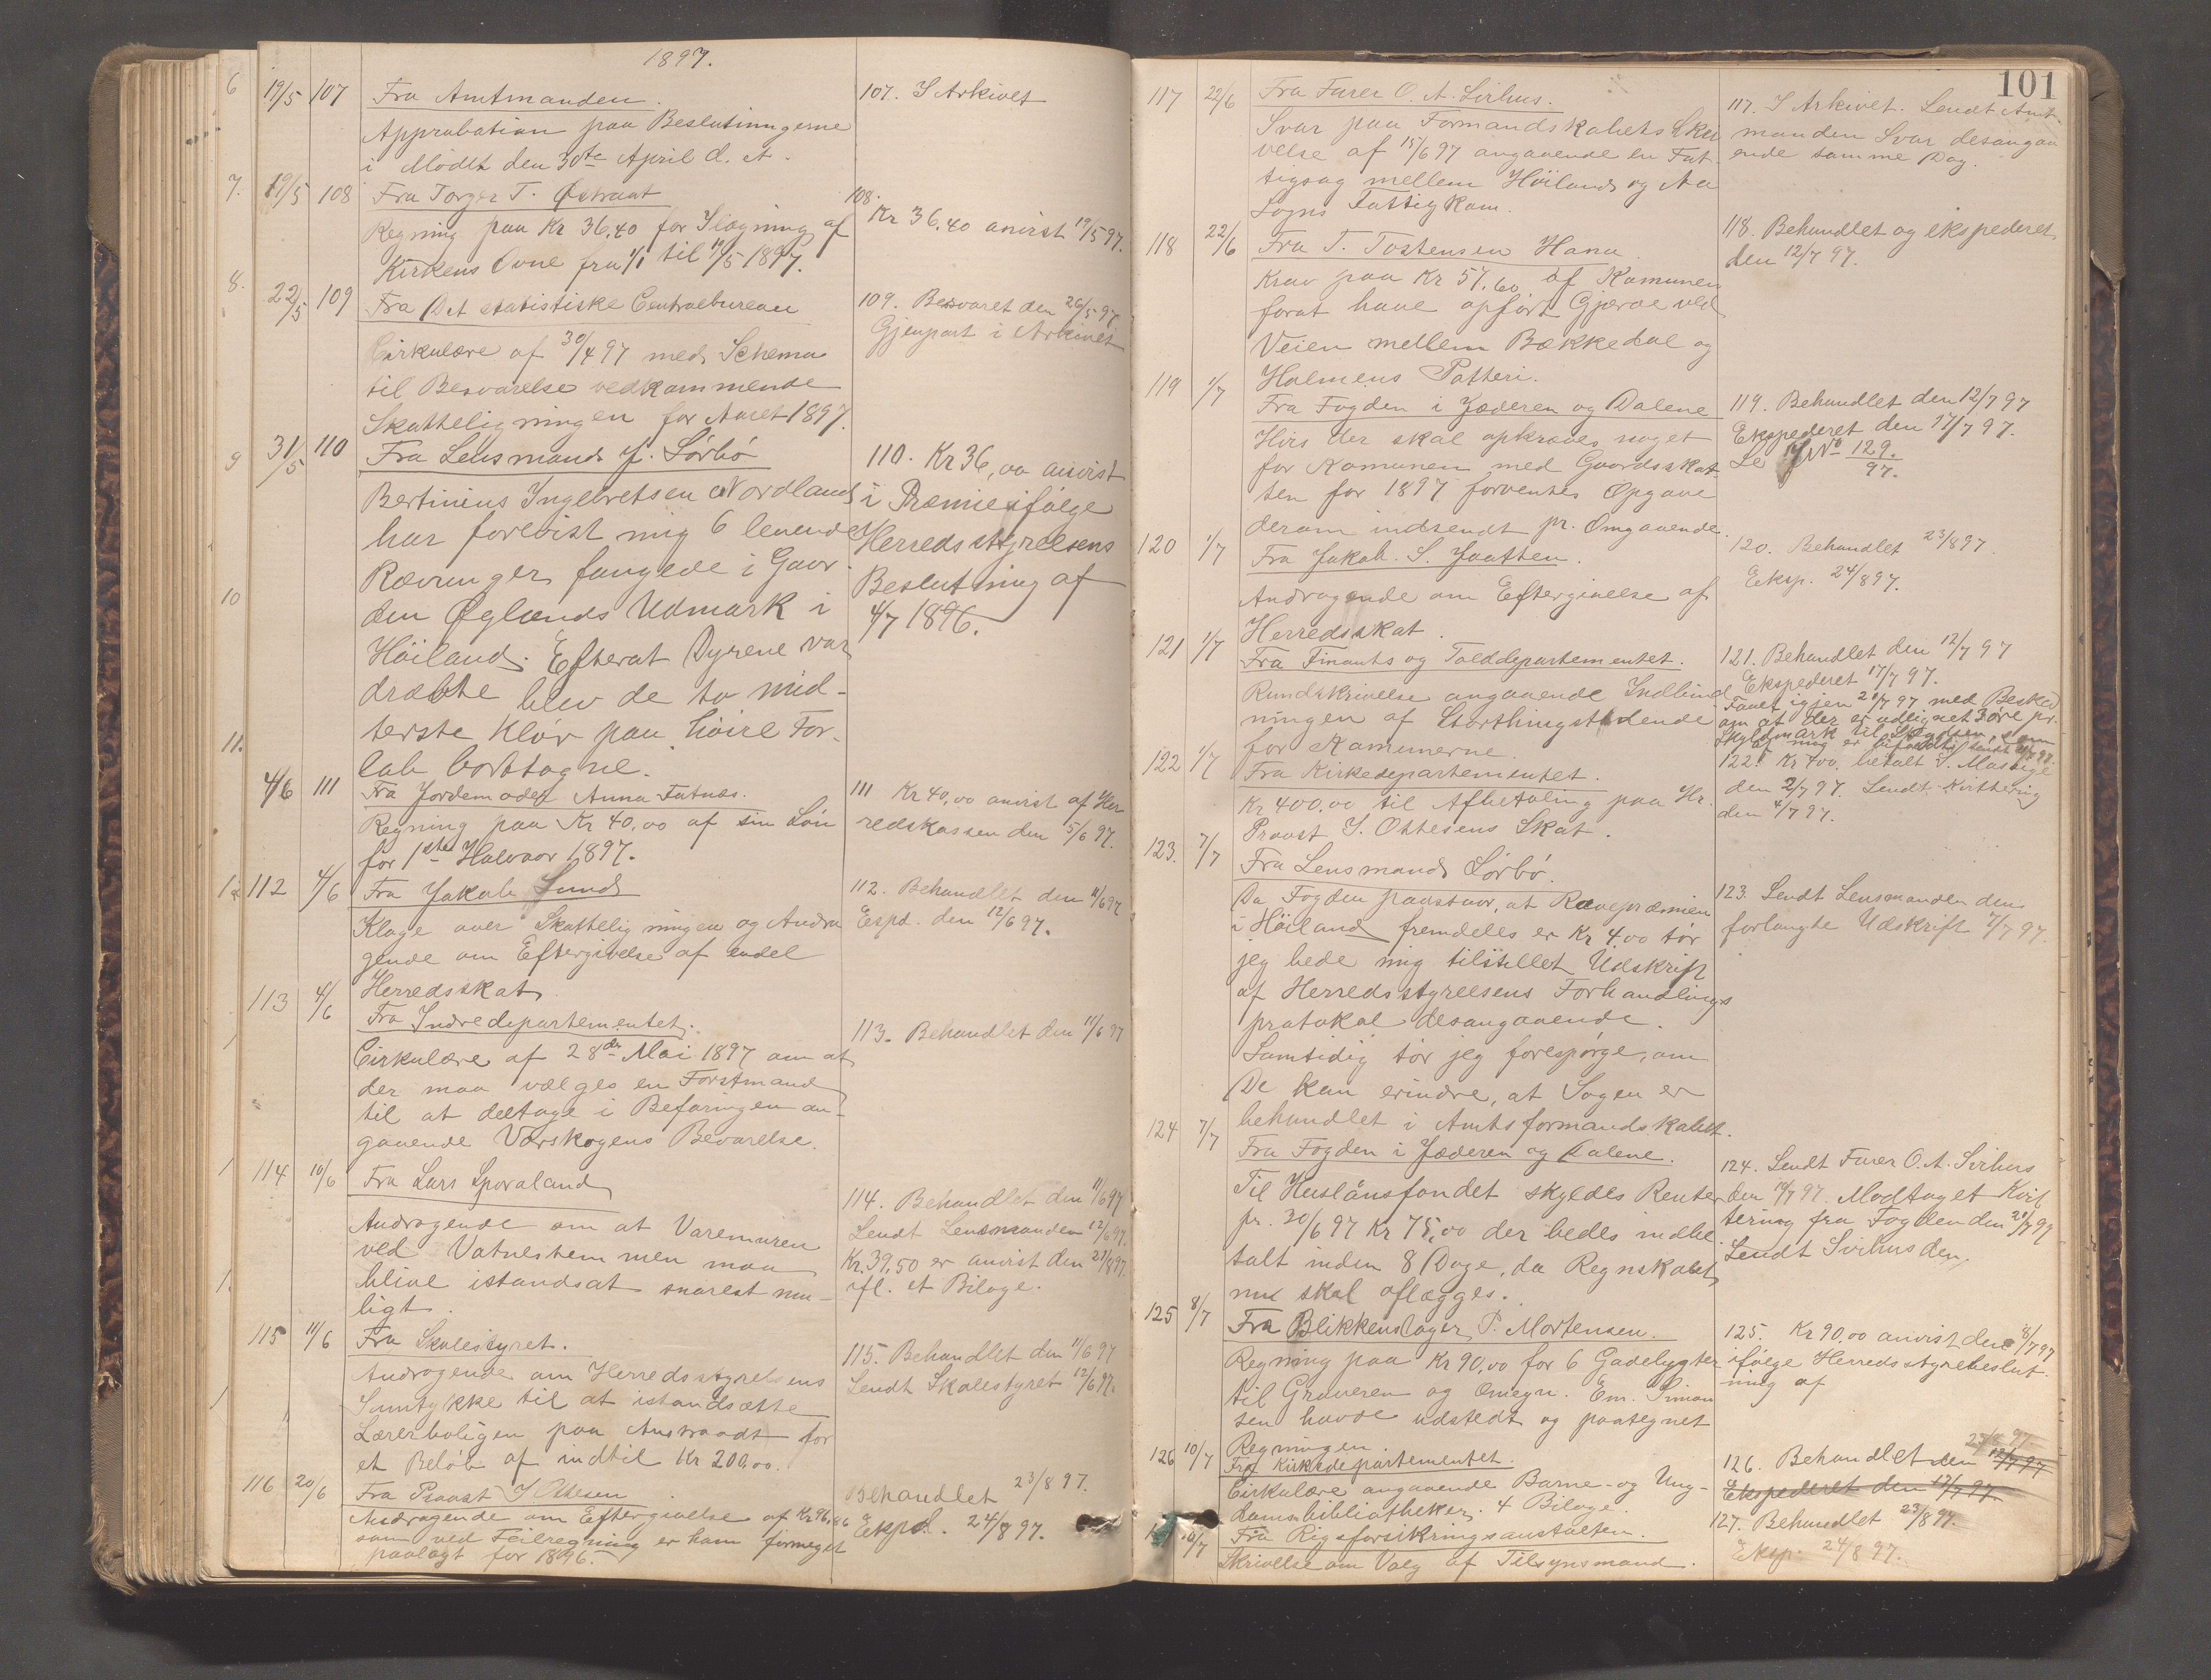 1897.
6 19/5 107 Fra Amtmanden.
Approbation paa Beslutningerne
i Mødet den 30te April d. A.
107. I Arkivet
7. 19/5 108 Fra Torger T. Østraat
Regning paa Kr 36,40 for Ilægning af
Kirkens Ovne fra 1/1 til 19/5 1897.
108.
Kr 36,40 anvist 19/5 97.
8. 22/5 109 Fra Det statistiske Centralbureau
Cirkulære af 30/4 97 med Schema
til Besvarelse vedkommende
Skatteligningen for Aaret 1897.
109. Besvaret den 26/5 97.
Gjenpart i Arkivet
9 31/5 110 Fra Lensmand J. Sørbø
Bertinius Ingebretsen Nordland
har forevist mig 6 levende
Ræveunger fangede i Gaar-
den Øglænds Udmark i
Høiland. Efterat Dyrene var
dræbte blev de to mid-
terste Klør paa høire For-
lab borttagne.
110. Kr 36,00 anvist
i Præmie ifølge
Herredsstyrelsens
Beslutning af
4/7 1896.
10
11.
4/6 111 Fra Jordemoder Anna Fatnæs.
Regning paa Kr 40,00 af sin Løn
for 1ste Halvaar 1897.
111 Kr 40,00 anvist af Her
redskassen den 5/6 97.
12 112 4/6 Fra Jakob Lund
Klage over Skatteligningen og Andra
gende om Eftergivelse af endel
Herredsskat.
112. Behandlet den 11/6 97
Expd. den 12/6 97.
113 4/6 Fra Indredepartementet.
Cirkulære af 28de Mai 1897 om at
der maa vælges en Forstmand
til at deltage i Befaringen an-
gaaende Værskogens Bevarelse.
113. Behandlet den 11/6 97
114 10/6 Fra Lars Sporaland
Andragende om at Varemuren
ved Vatnestemmen maa
blive istandsat snarest mu-
ligt.
114. Behandlet den 11/6 97
Sendt Lensmanden 12/6 97.
Kr. 39,50 er anvist den 21/8 97.
ifl. et Bilage.
115 11/6 Fra Skolestyret.
Andragende om Herredsstyrelsens
Samtykke til at istandsætte
Lærerboligen paa Austraadt for
et Beløb af indtil Kr 200,00.
115. Behandlet den 11/6 97
Sendt Skolestyret 12/6 97.
116 20/6 Fra Provst J Ottesen
Andragende om Eftergivelse af Kr 96,86
som ved Feilregning er ham formeget
paalagt for 1896.
Behandlet 23/8 97.
Ekspd. 24/8 97.
101
117 22/6 Fra Furer O. A. Sirhus.
Svar paa Formandskabets Skri
velse af 15/6 97 angaaende en Fat-
tigsag mellem Høiland og Aa
Sogns Fattigkom.
117. I Arkivet. Sendt Amt-
manden Svar desangaa
ende samme Dag.
118 22/6 Fra T. Tostensen Hana
Krav paa Kr 57,60 af Komunen
forat have opført Gjærde ved
Veien mellem Bækkedal og
Holmens Potteri.
118. Behandlet og ekspederet
den 12/7 97.
119 1/7 Fra Fogden i Jæderen og Dalene
Hvis der skal opkræves noget
for Komunen med Gaardsskat-
ten for 1897 forventes Opgave
derom indsendt pr. Omgaaende.
119. Behandlet den 12/7 97
Ekspederet den 17/7 97.
Se JNo 129./97.
120 1/7 Fra Jakob S. Jaatten.
Andragende om Eftergivelse af
Herredsskat.
120. Behandlet 23/8 97.
Eksp. 24/8 97.
121 1/7 Fra Finants og Tolddepartementet.
Rundskrivelse angaaende Indlem
ningen af Storthingst dende
for Komunerne.
121. Behandlet den 12/7 97
Ekspederet 17/7 97.
Faaet igjen 21/7 97 med Besked
om at der er udlignet 3 øre pr.
Skyldmark til
122 1/7 Fra Kirkedepartementet.
Kr 400,00 til Afbetaling paa Hr.
Provst J. Ottesens Skat.
122. Kr 400. betalt
den 2/7 97. Sendt Kvittering
den 4/7 97.
123. 7/7 Fra Lensmand Sørbø.
Da Fogden paastaar, at Rævepræmien
i Høiland fremdeles er Kr 4,00 tør
jeg bede mig tilstillet Udskrift
af Herredsstyrelsens Forhandlings
protokol desangaaende.
Samtidig tør jeg forespørge, om
De kan erindre, at Sagen er
behandlet i Amtsformandskabet.
123. Sendt Lensmanden den
forlangte Udskrift 7/7 97.
124 7/7 Fra Fogden i Jæderen og Dalene.
Til Huslånsfondet skyldes Renter
pr. 30/6 97 Kr 75,00 der bedes indbe
talt inden 8 Dage, da Regnskabet
nu skal aflægges.
124. Sendt Furer O. A. Sirhus
den 10/7 97. Modtaget Kvit
tering fra Fogden den 21/7 97
Sendt Sirhus den
125 8/7 Fra Blikkenslager P. Mortensen.
Regning paa Kr 90,00 for 6 Gadelygter
til Graveren og Omegn. Em. Simon
sen havde udstedt og paategnet
Regningen.
125. Kr 90,00 anvist den 8/7 97
ifølge Herredsstyrebeslut-
ning af
126 10/7 Fra Kirkedepartementet.
Cirkulære angaaende Barne- og Ung-
domsbibliotheker. 4 Bilage.
126. Behandlet den 12/7 97
Ekspederet den 17/7 97.
10/7 Fra Rigsforsikringsanstalten.
Skrivelse om Valg af Tilsynsmand.
127. Behandlet 23/8 97.
Eksp. 24/8 97.